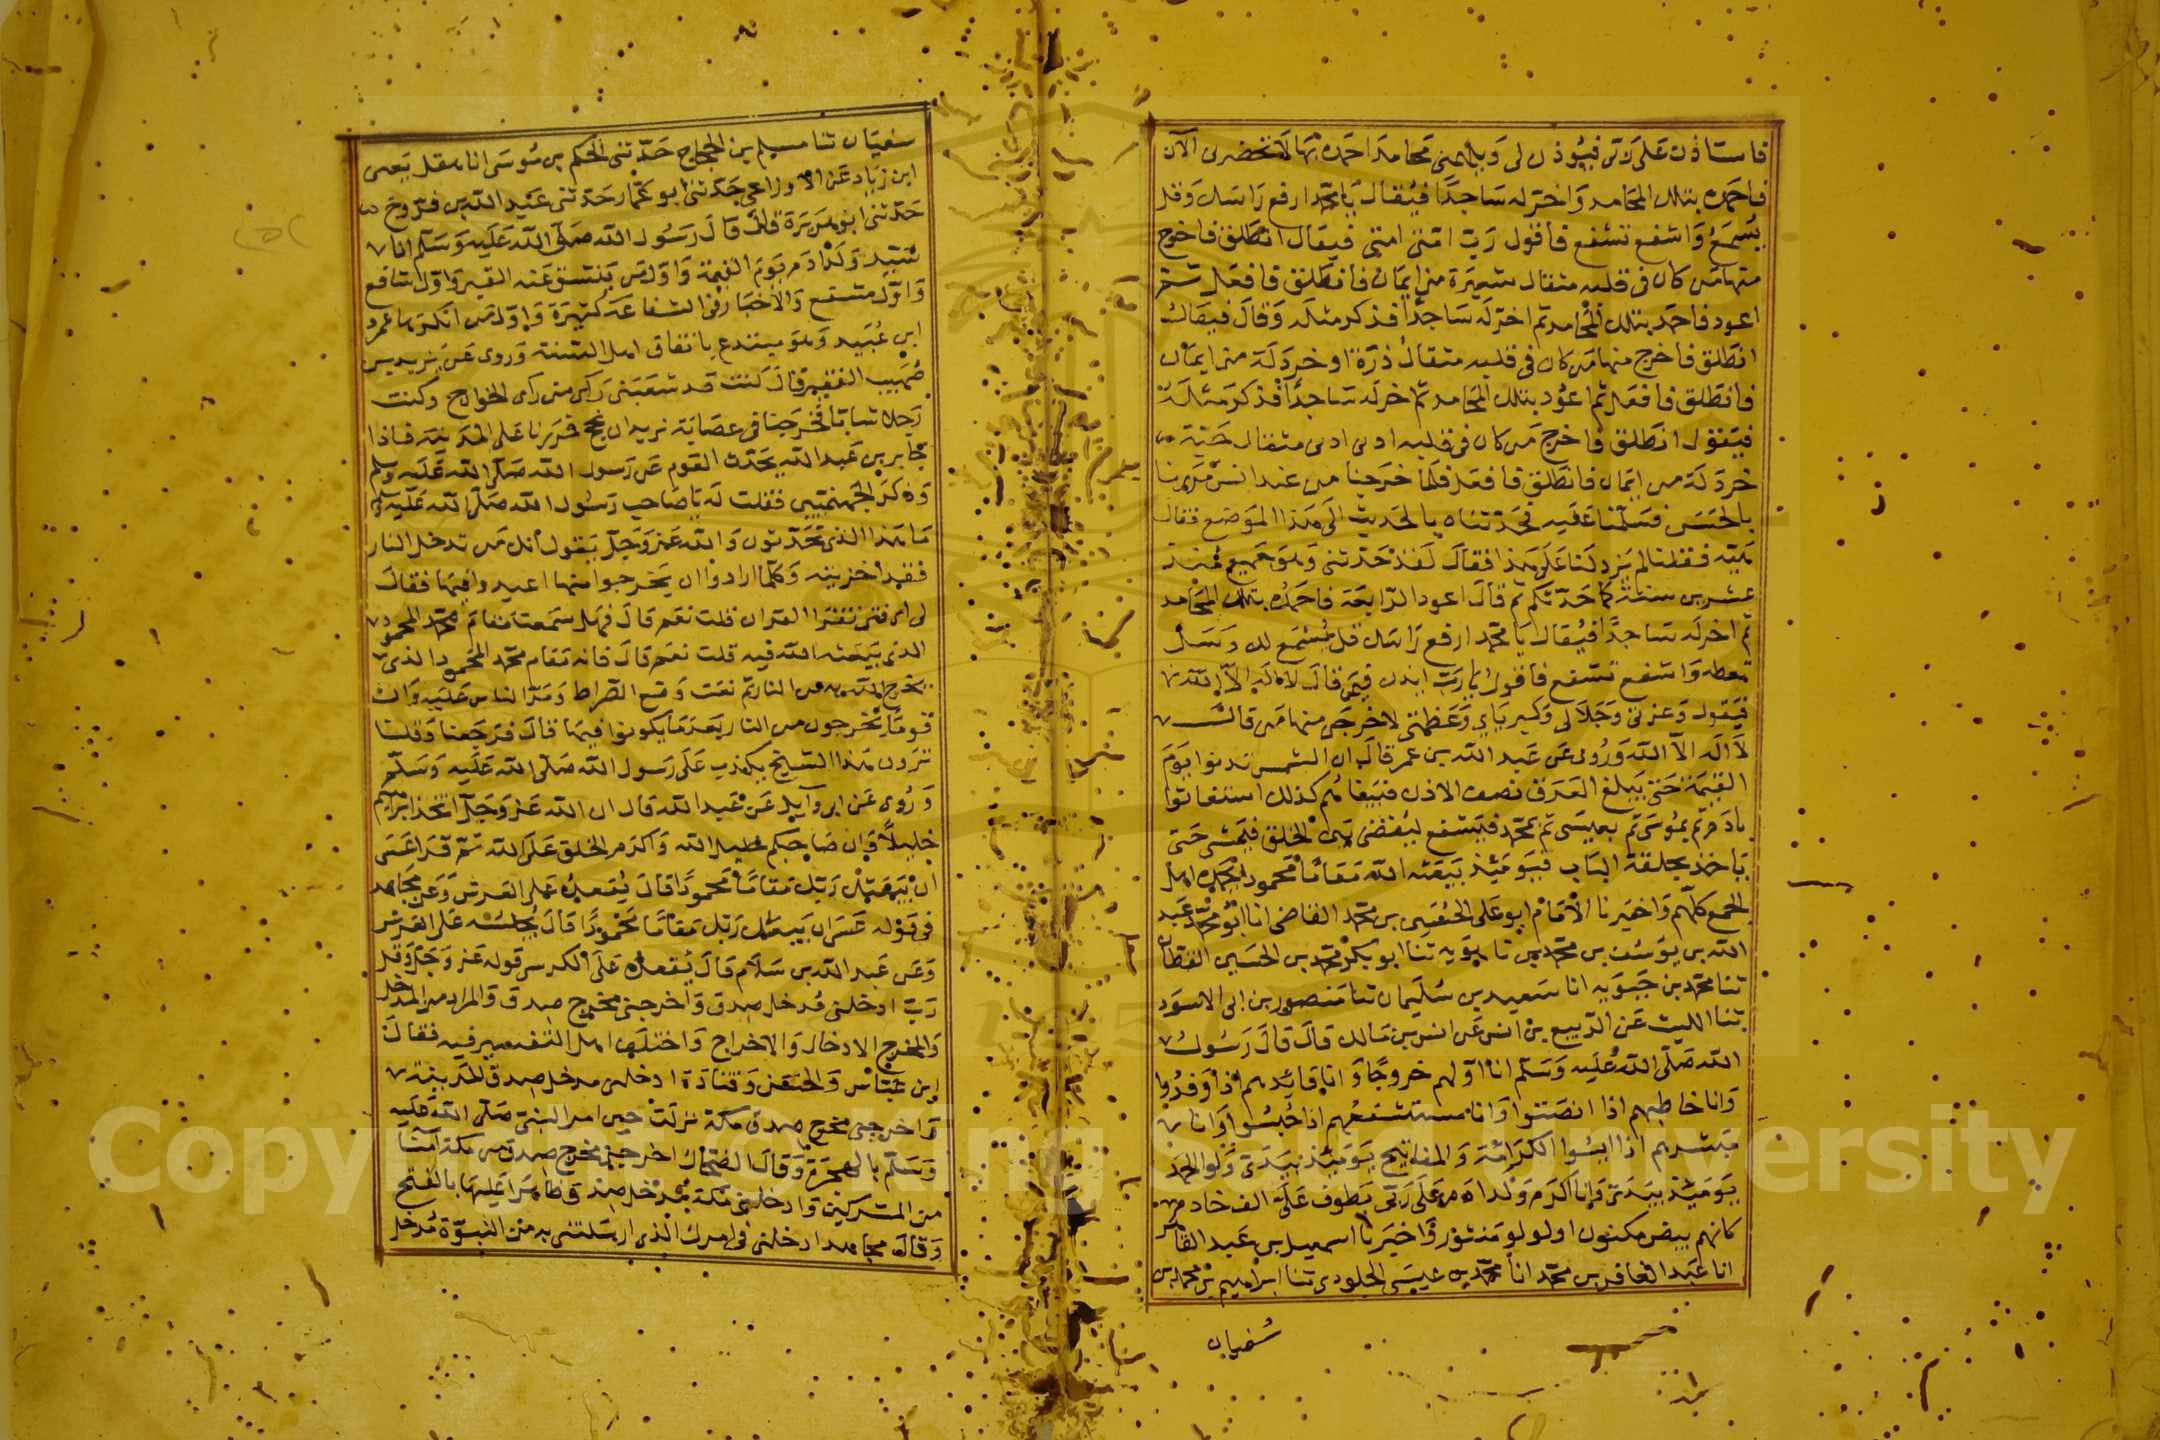 فاستاذن على ربي فيؤذن لي ويلهمني محامد احمده بها لا تحضرني الآن
فاحمده بتلك المحامد واخر له ساجدًا فيقال يا محمد ارفع راسك وقل
يسمع واشفع تشفع فاقول رب امتي امتي فيقال انطلق فاخرج
منها من كان في قلبه مثقال شعيرة من ايمان فانطلق فافعل ثم
اعود فاحمد بتلك المحامد ثم اخر له ساجدًا فذكر مثله وقال فيقال
انطلق فاخرج منها من كان في قلبه مثقال ذرة او خردلة من ايمان
فانطلق فافعل ثم اعود بتلك المحامد ثم اخر له ساجدًا فذكر مثله
فيقول انطلق فاخرج من كان في قلبه ادنى ادنى مثقال حبة
خردلة من ايمان فانطلق فافعل فلما خرجنا من عند انس مررنا
بالحسن فسلمنا عليه فحدثناه بالحديث الى هذا الموضع فقال
هيه فقلنا لم يزد لنا على هذا فقال لقد حدثني وهو جميع منذ
عشرين سنة كما حدثكم ثم قال اعود الرابعة فاحمده بتلك المحامد
ثم اخر له ساجدًا فيقال يا محمد ارفع راسك قل يسمع لك وسل
تعطه واشفع تشفع فاقول يا رب ايذن فيمن قال لا اله الا الله
فيقول وعزتي وجلالي وكبريايي وعظمتي لاخرجن منها من قال
لا اله الا الله وروي عن عبد الله بن عمر قال ان الشمس تدنوا يوم
القيمة حتى يبلغ العرق نصف الاذن فبيناهم كذلك استغاثوا
بادم ثم بموسى ثم بعيسى ثم بمحمد فيشفع ليقضى بين الخلق فيمشي حتى
ياخذ بحلقة الباب فيوميذ يبعثه الله مقامًا محمودًا يحمده اهل
الجمع كلهم واخبرنا الامام ابو علي الحسين بن محمد القاضي انا ابو محمد عبد
الله بن يوسف بن محمد بن بابويه ثنا ابو بكر محمد بن الحسين القطان
ثنا محمد بن حيويه انا سعيد بن سليمان ثنا منصور بن ابي الاسود
ثنا الليث عن الربيع بن انس عن انس بن مالك قال قال رسول
الله صلى الله عليه وسلم انا اولهم خروجًا وانا قايدهم اذا وفدوا
وانا خاطبهم اذا انصتوا وانا مستشفعهم اذا حبسوا وانا
مبشرهم اذا ايسوا الكرامة والمفاتيح يوميذ بيدي ولوا الحمد
يوميذ بيدي وانا اكرم ولد ادم على ربي يطوف علي الف خادم
كانهم بيض مكنون او لولو منثور واخبرنا اسمعيل بن عبد القاهر
انا عبد الغافر بن محمد انا محمد بن عيسى الجلودي ثنا ابراهيم بن محمد بن
سفيان
سفيان ثنا مسلم بن الحجاج حدثني الحكم بن موسى انا هقل يعني
ابن زياد عن الاوزاعي حدثني ابو عمار حدثني عبد الله بن فروخ
حدثني ابو هريرة قال قال رسول الله صلى الله عليه وسلم انا
سيد ولد ادم يوم القيمة واول من ينشق عنه القبر واول شافع
واول مشفع والاخبار في الشفاعة كثيرة واول من انكرها عمرو
ابن عبيد وهو مبتدع باتفاق اهل السنة وروى عن يزيد بن
صهيب الفقير قال كنت قد شعبني راي من راي الخوارج وكنت
رجلا شابا فخرجنا في عصابة نريد ان نحج فمررنا على المدينة فاذا
جابر بن عبد الله يحدث القوم عن رسول الله صلى الله عليه وسلم
وذكر الجهنميين فقلت له يا صاحب رسول الله صلى الله عليه وسلم
ما هذا الذي تحدثون والله عز وجل يقول انك من تدخل النار
فقد اخزيته وكلما ارادوا ان يخرجوا منها اعيدوا فيها فقال
لي اي فتى تقرا القران قلت نعم قال فهل سمعت مقام محمد المحمود
الذي يبعثه الله فيه قلت نعم قال فانه مقام محمد المحمود الذي
يخرج الله به من النار ثم نعت وضع الصراط ومر الناس عليه وان
قومًا يخرجون من النار بعد ما يكونوا فيها قال فرجعنا وقلنا
ترون هذا الشيخ يكذب على رسول الله صلى الله عليه وسلم
وروي عن ابي وايل عن عبد الله قال ان الله عز وجل اتخذ ابراهيم
خليلًا وان صاحبكم خليل الله واكرم الخلق على الله ثم قرا عسى
ان يبعثك ربك مقامًا محمودًا قال يقعده على العرش وعن مجاهد
في قوله عسى ان يبعثك ربك مقامًا محمودًا قال يجلسه على العرش
وعن عبد الله بن سلام قال يقعده على الكرسي قوله عز وجل وقل
رب ادخلني مدخل صدق واخرجني مخرج صدق والمراد من المدخل
والمخرج الادخال والاخراج واختلف اهل التفسير فيه فقال
ابن عباس والحسن وقتادة ادخلني مدخل صدق المدينة
واخرجني مخرج صدق مكة نزلت حين امر النبي صلى الله عليه
وسلم بالهجرة وقال الضحاك اخرجني مخرج صدق من مكة آمنًا
من المشركين وادخلني مكة مدخل صدق ظاهرًا عليها بالفتح
وقال مجاهد ادخلني في امرك الذي ارسلتني به من النبوة مدخل
Copyright © King Saud University